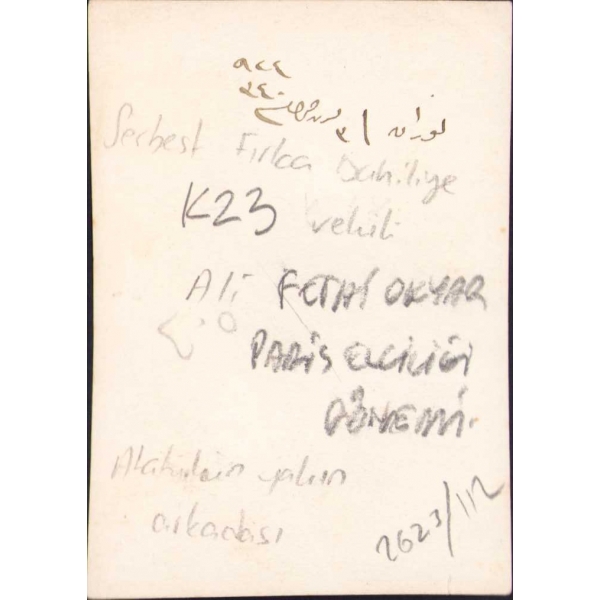 ٩٢٤
٣٤٠
Serbest Fırka Dahiliye
K23 vekili
Ali FETHİ OKYAR
PARİS ELÇİLİĞİ
DÖNEMİ.
Atatürkün yakın
arkadaşı
2623/112